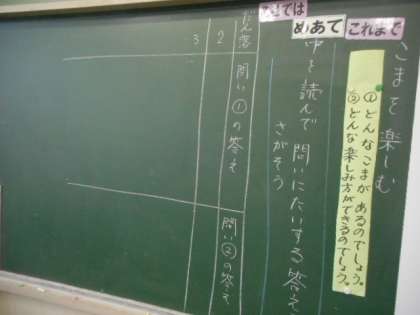 こまを楽しむ
これまで
①どんなこまがあるのでしょう。
②どんな楽しみ方ができるのでしょう。
めあて
中を読んで問いにたいする答えを
さがそう
だん落
問い①の答え
問い②の答え
2
3